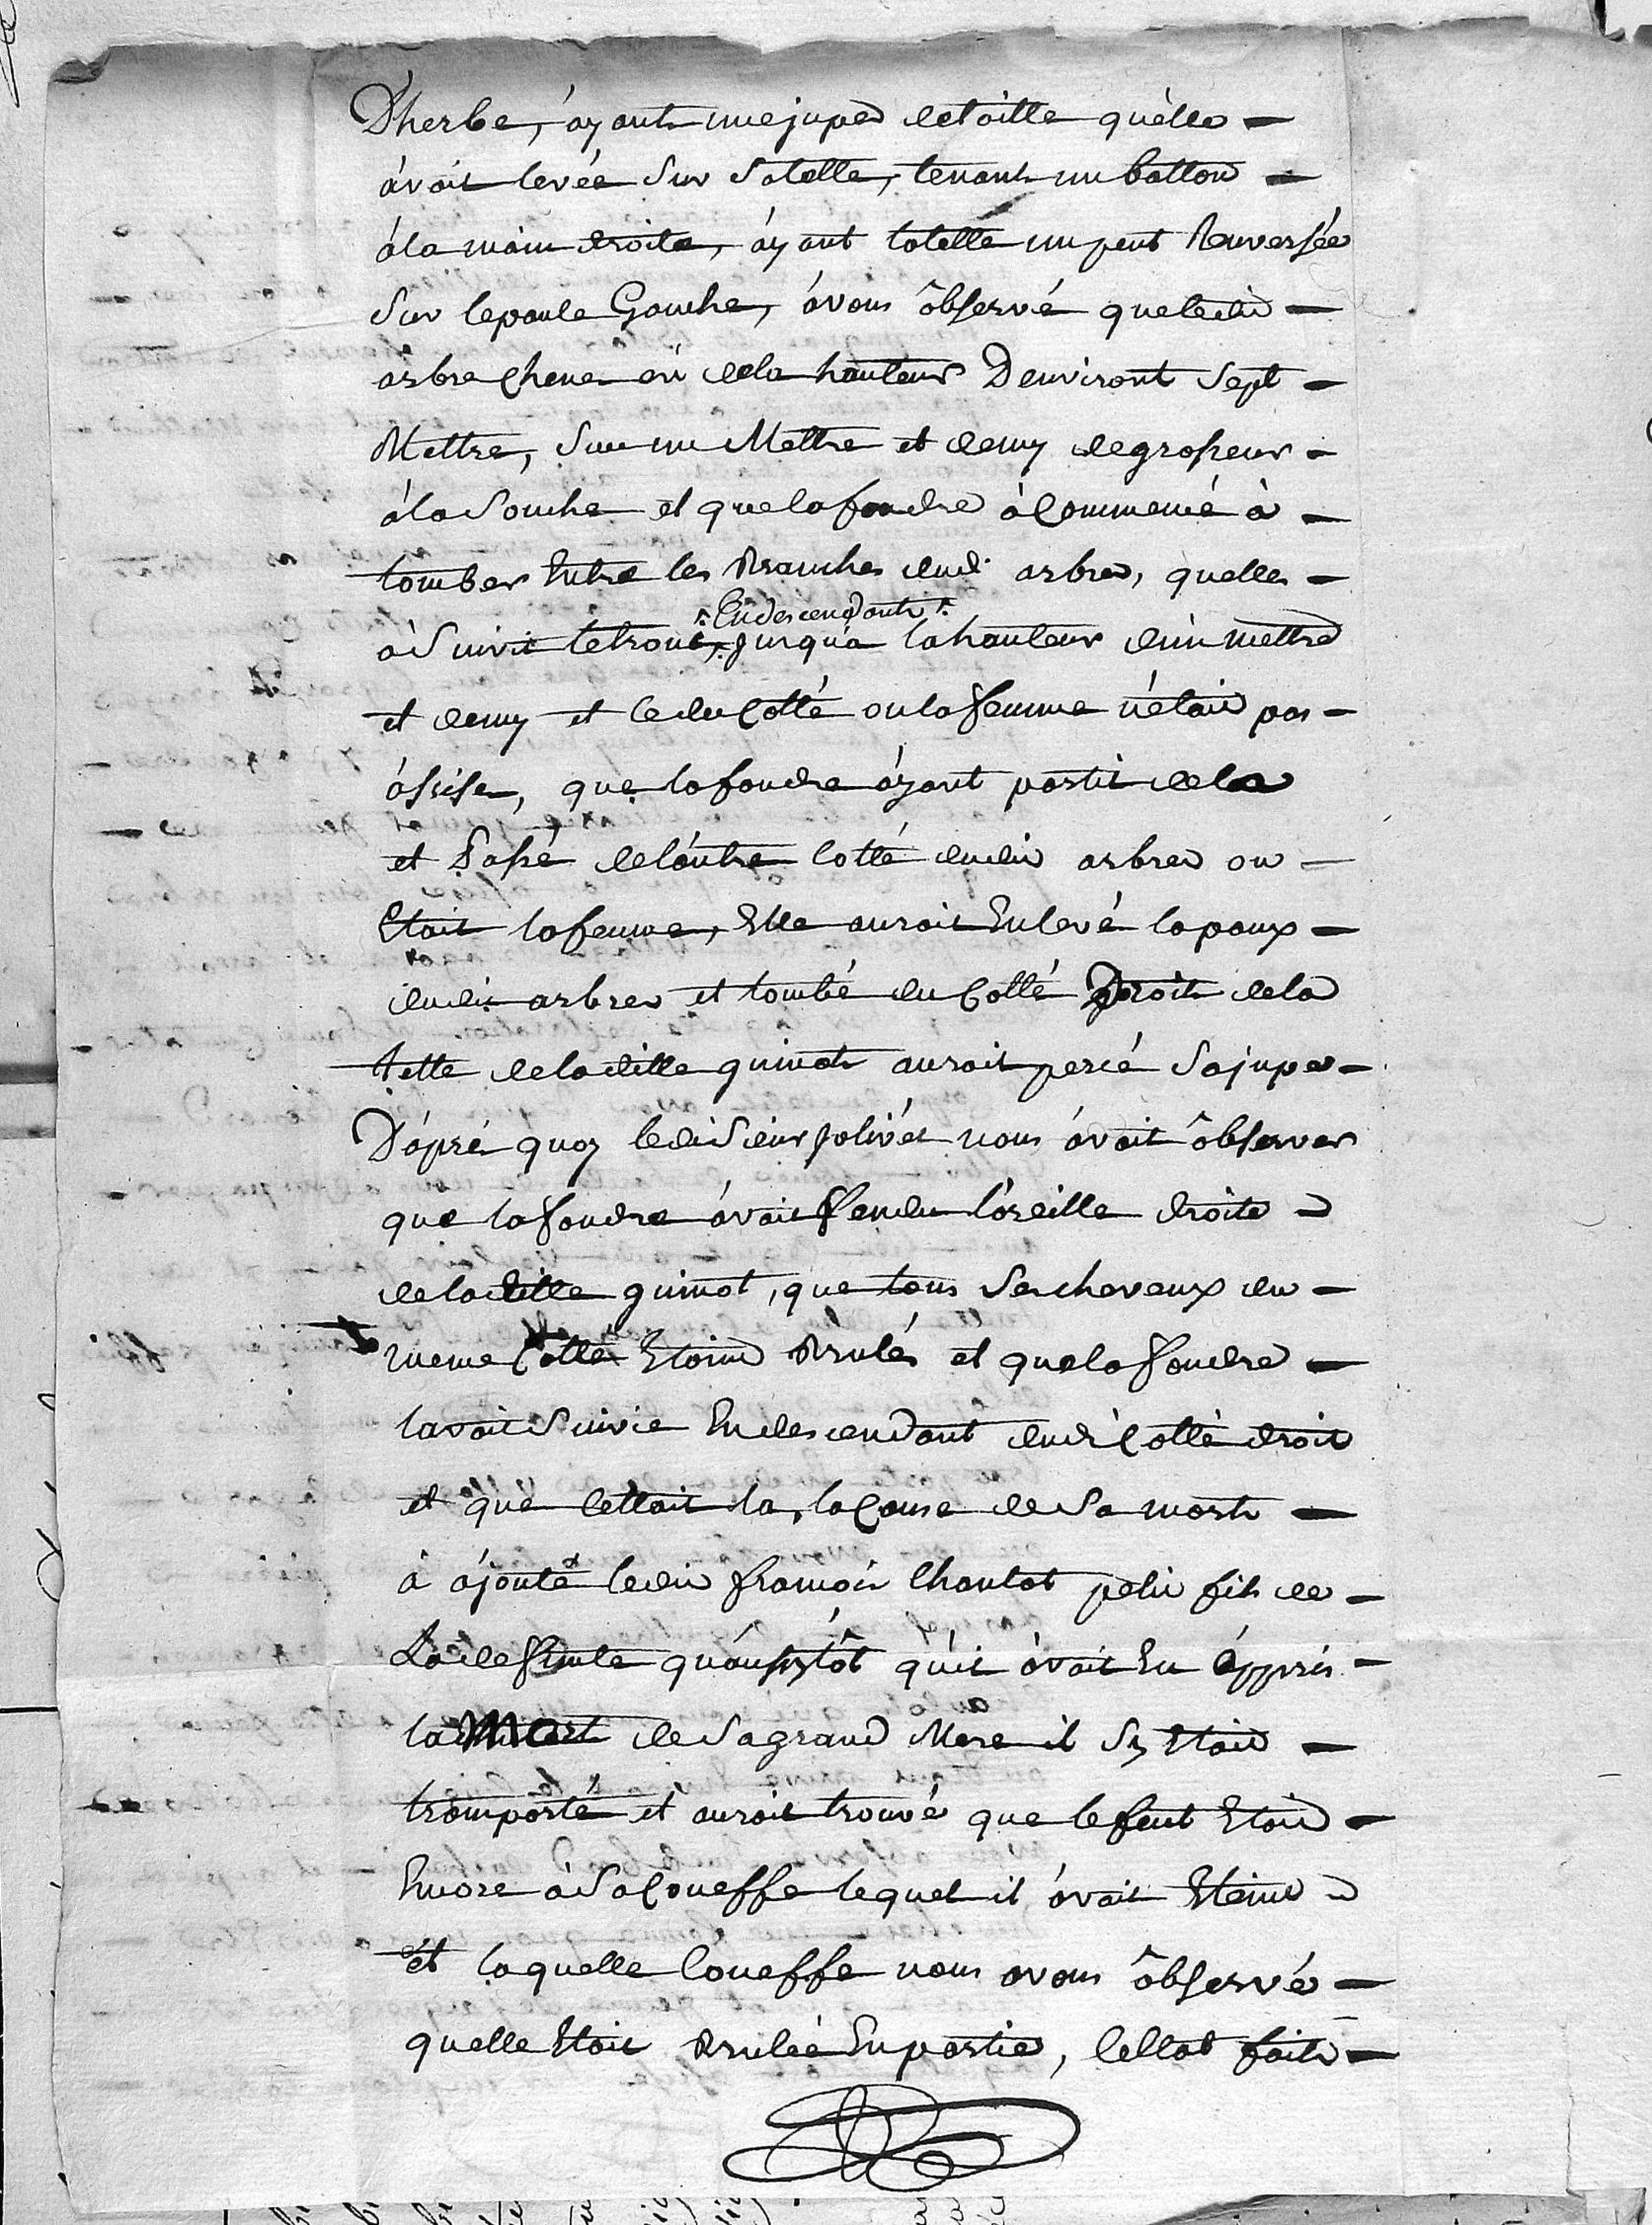 Dherbe, áyant une jupe de toille quélle
ávait levée Sur Sa tette, tenant un batton
á la main droite, áyant la tette un peut Renversée
Sur lepaule Gauche, ávons ôbservé que ledit
arbre Chene ou de la hauteur Denviront Sept
Mettre, Sur un Mettre et demy de grosseur
á la Souche et que la foudre à Commencé à
tomber Entre les Branches dud. arbre, quelle
à Suivit le tronc, En descendant jusqua la hauteur d'un mettre
et demy et ce du Cotté ou la femme n'étais pas
ássise, que la foudre áyant partit de la
et Passé de lóutre Cotté dudit arbre ou
Etait la femme, Elle aurait Enlevé la paux
dudit arbre et tombé du Cotté Droit de la
tette de la ditte guinot aurait percé Sa jupe
D'ápré quoy ledit Sieur jolivet nous ávait ôbserver
que la foudre ávait fendu l'oreille droite
de la ditte guinot, que tous Ses cheveux du
meme Cotté Etoint Brulés et que la foudre
lavait Suivie En descendant dudi Cotté droit
et que Cettait la, la Cause de Sa mort
à ájouté ledit francois Chautot petit fils de
La defunte quáussytôt qu'il ávait Eu áppris
la Mort de Sa grand Mere il Sy Etait
tromporté et aurait trouvé que le feut Etoit
Encore à Sa Coueffe lequel il ávait Eteint
et laquelle Coueffe nous avons ôbservé
quelle Etoit Brulée En partie, Cellat fait